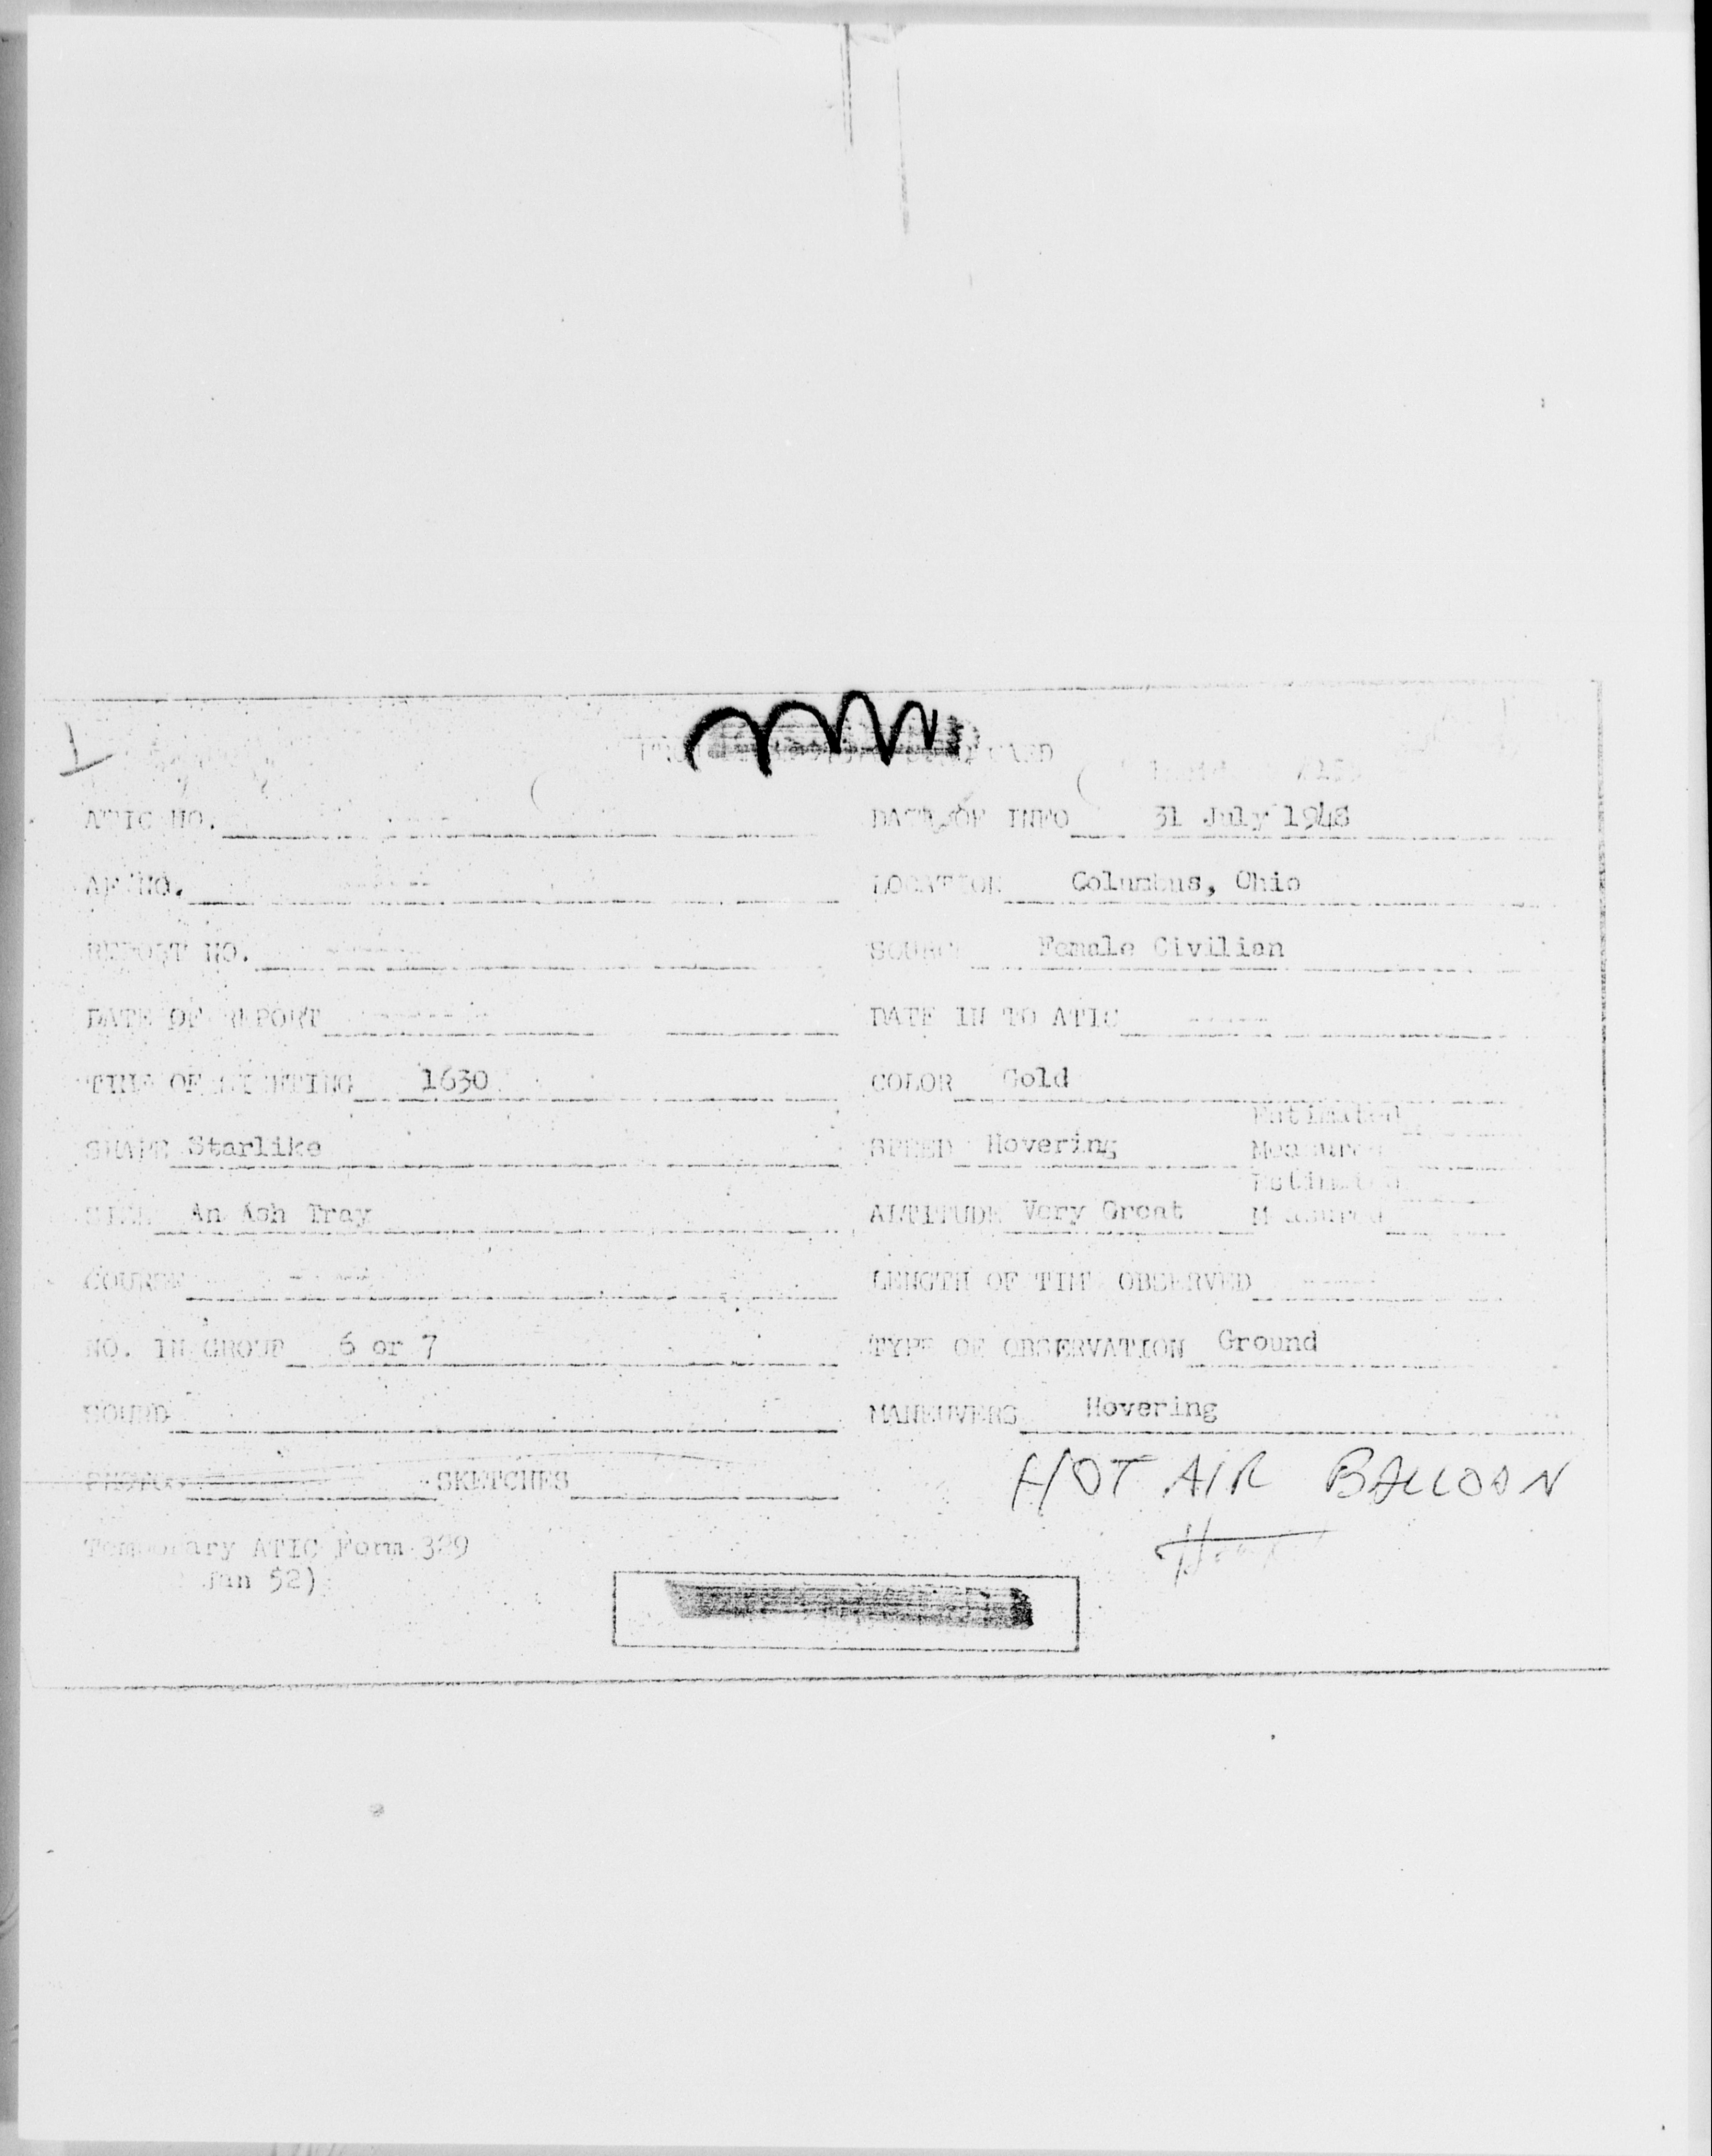 ATIC NO. DATE OF INFO 31 July 1948
AF NO. LOCATION Columbus, Ohio
REPORT NO. SOURCE Female Civilian
DATE OF REPORT DATE IN TO ATIC
TIME OF SIGHTING 1630 COLOR Gold
Estimated
SHAPE Starlike SPEED Hovering Measured
Estimated
SIZE An Ash Tray ALTITUDE Very Great Measured
COURSE LENGTH OF TIME OBSERVED
NO. IN GROUP 6 or 7 TYPE OF OBSERVATION Ground
SOUND MANEUVERS Hovering
PHOTOS SKETCHES
HOT AIR BALLOON
Temporary ATIC Form 329
Jan 52)